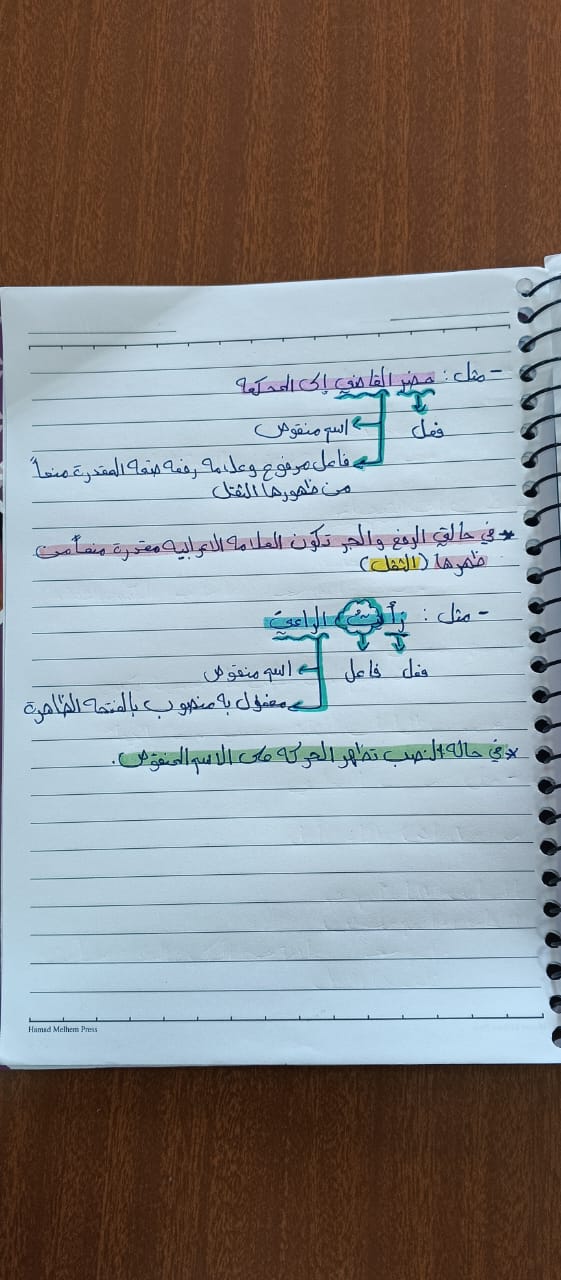 - مثل : حضر القاضي إلى المحكمة
فعل
اسم منقوص
فاعل مرفوع وعلامة رفعه ضمة المقدرة منعاً
من ظهورها الثقل
* في حالتي الرفع والجر تكون العلامة الاعرابية مقدرة منعاً من
ظهرها (الثقل)
- مثل : رأيتُ الراعيَ
فعل فاعل اسم منقوص
مفعول به منصوب بالفتحة الظاهرة
* في حالة النصب تظهر الحركة على الاسم المنقوص.
Hamad Melhem Press